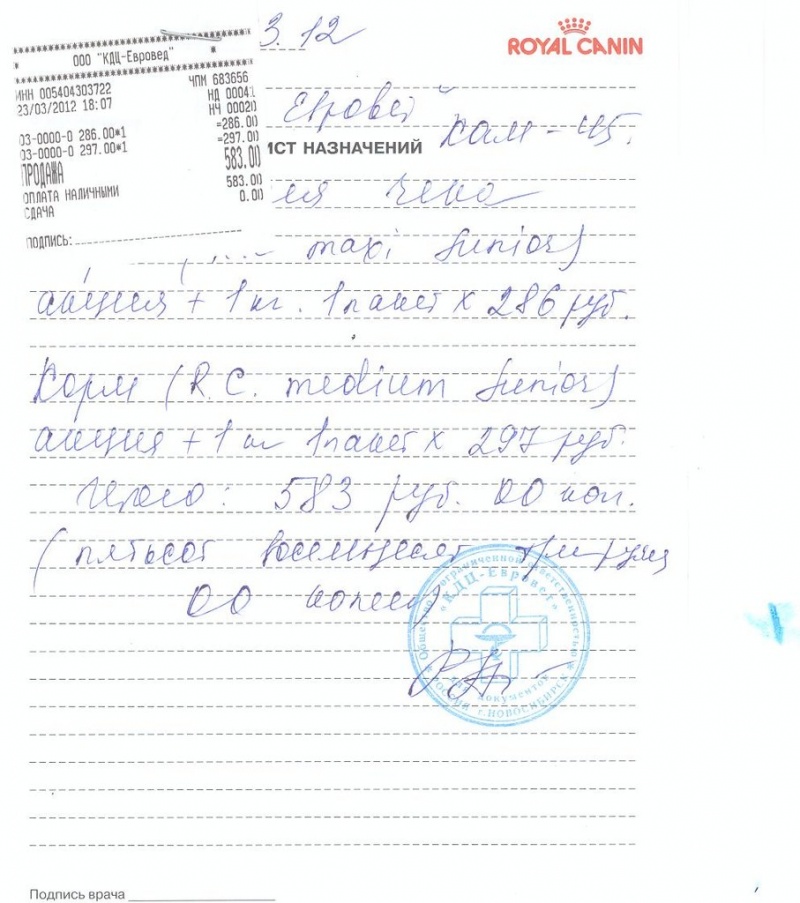 ООО "КДЦ-Евровед"
ИНН 005404303722 ЧПМ 683656
23/03/2012 18:07 НД 00041
НЧ 00020
03-0000-0 286.00*1 =286.00
03-0000-0 297.00*1 =297.00
ПРОДАЖА 583.00
ОПЛАТА НАЛИЧНЫМИ 583.00
СДАЧА 0.00
ПОДПИСЬ:
3.12
ROYAL CANIN
ИСТ НАЗНАЧЕНИЙ
чека
maxi Junior)
акция + 1 кг. 1 пакет х 286 руб.
Корм (R.C. medium Junior)
акция + 1 кг 1 пакет х 297 руб.
Итого: 583 руб. 00 коп.
(пятьсот восемьдесят три рубля
00 копеек)
Общество с ограниченной ответственностью
"КДЦ-Евровет"
для документов
РОССИЯ г.НОВОСИБИРСК
Подпись врача